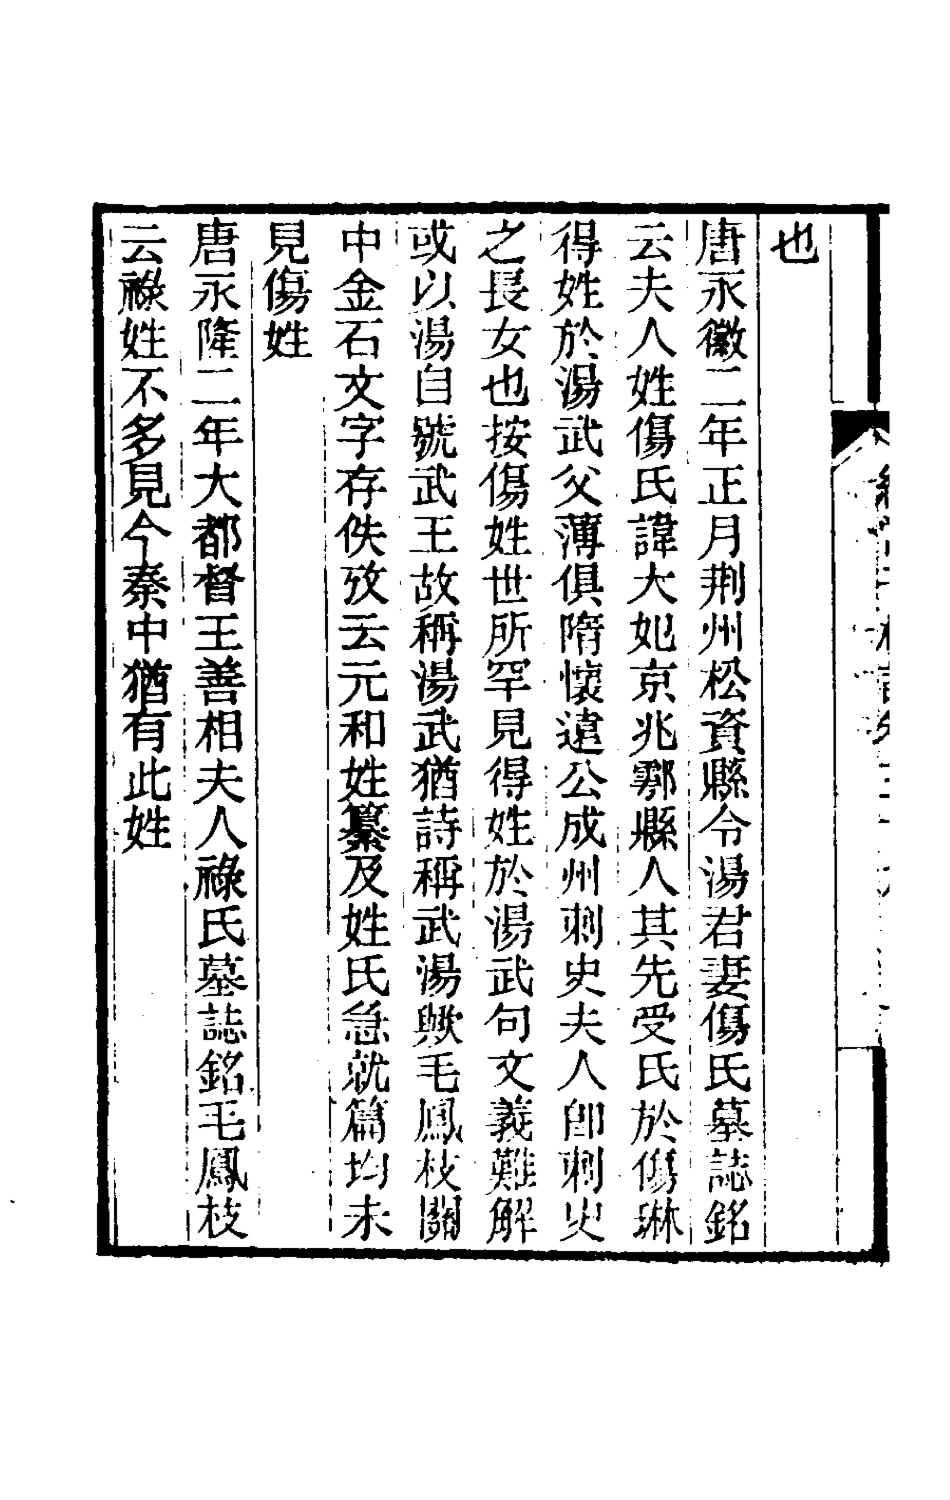 也
唐永徽二年正月荆州松資縣令湯君妻傷氏墓誌銘
云夫人姓傷氏諱大妃京兆鄠縣人其先受氏於傷琳
得姓於湯武父薄俱隋懷遠公成州刺史夫人卽刺史
之長女也按傷姓世所罕見得姓於湯武句文義難解
或以湯自號武王故稱湯武猶詩稱武湯歟毛鳳枝關
中金石文字存佚攷云元和姓纂及姓氏急就篇均未
見傷姓
唐永隆二年大都督王善相夫人祿氏墓誌銘毛鳳枝
云祿姓不多見今秦中猶有此姓